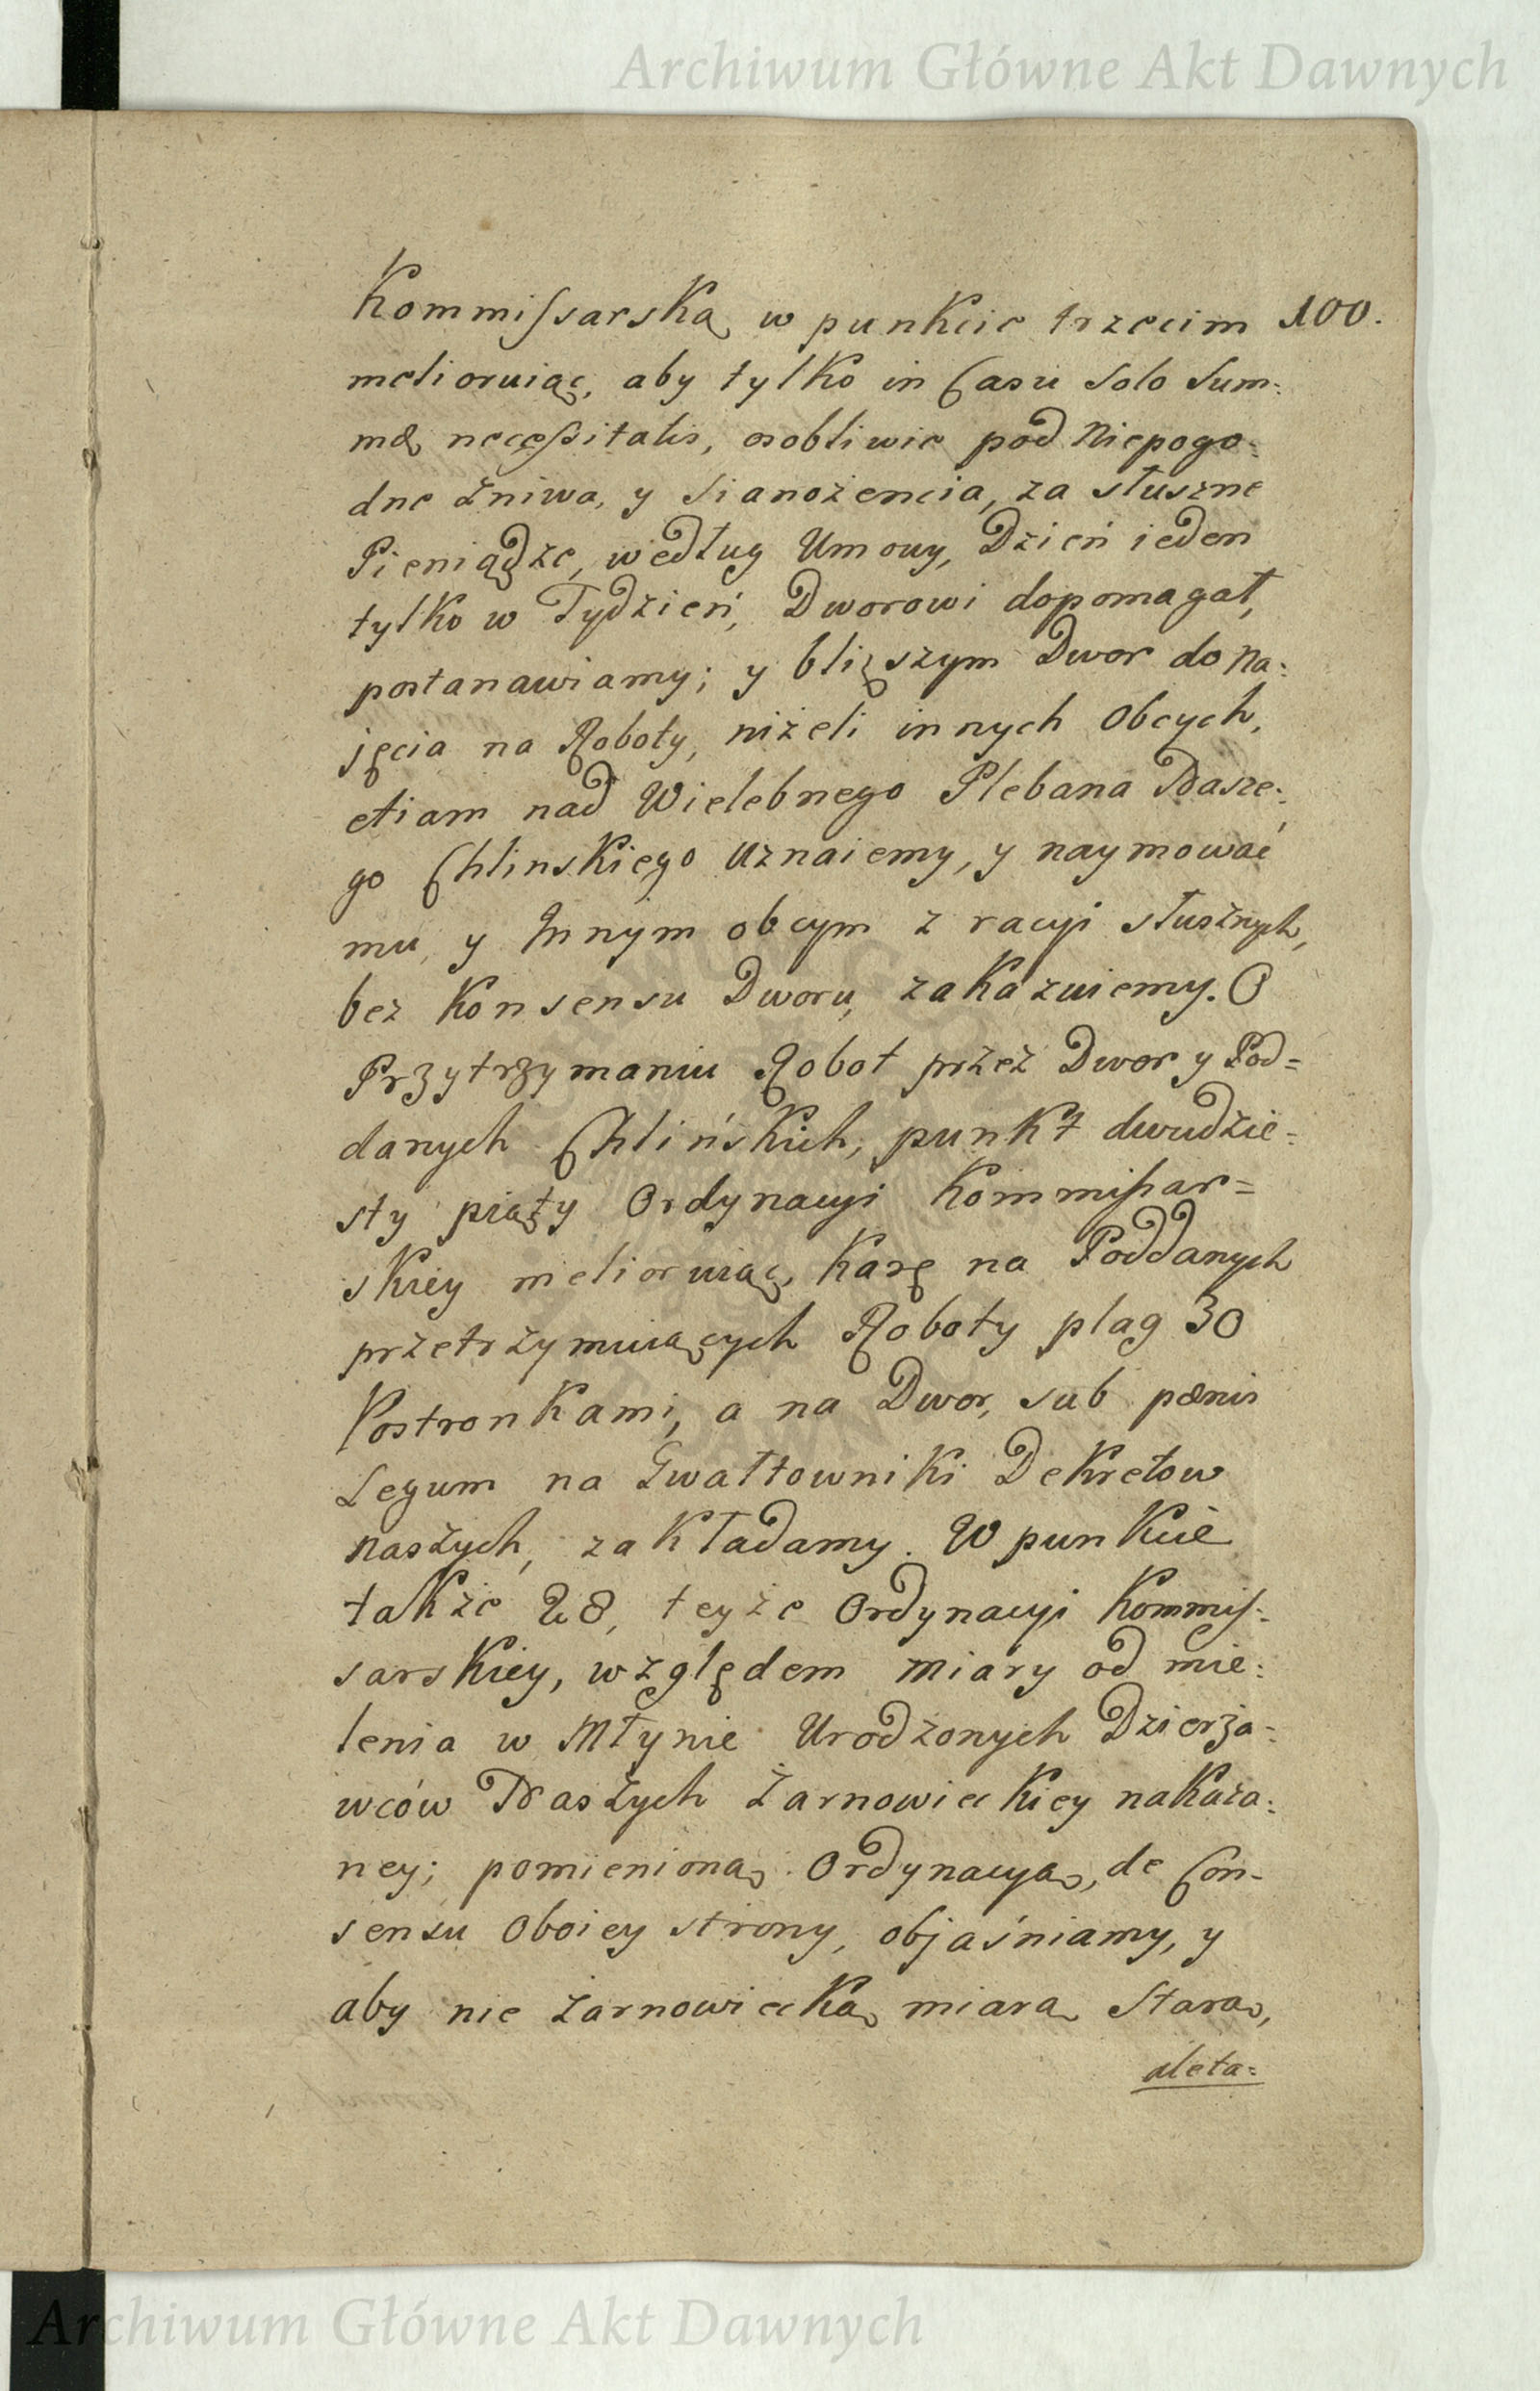 Archiwum Główne Akt Dawnych
Kommissarską w punkcie trzecim 100.
melioruiąc, aby tylko in Casu Solo Sum:
mæ necessitatis, osobliwie pod Niepogo:
dne Żniwa, y Sianożencia, za słuszne
Pieniądze, według Umowy, Dzień ieden
tylko w Tydzień, Dworowi dopomagał,
postanawiamy; y bliższym Dwor do Na:
jęcia na Roboty, niżeli innych Obcych,
etiam nad Wielebnego Plebana Nasze:
go Chlinskiego Uznaiemy, y naymować
mu, y Innym obcym z racyi słusżnych,
bez Konsensu Dworu, zakazuiemy. O
Przytrzymaniu Robot przez Dwor y Pod=
danych Chlińskich, punkt dwudzie=
sty piąty Ordynacyi Kommissar=
skiey melioruiąc, Karę na Poddanych
przetrzymuiących Roboty plag 30
Postronkami, a na Dwor, sub pœnis
Legum na Gwałtowniki Dekretow
naszych, zakładamy. W punkcie
także 28, teyże Ordynacyi Kommis:
sarskiey, względem miary od mie:
lenia w Młynie Urodzonych Dzierża:
wców Naszych Żarnowieckiey nakaza:
ney; pomienioną Ordynacyą, de Con-
sensu Oboiey strony, objaśniamy, y
aby nie Żarnowiecką miarą Starą,
aleta=
Archiwum Główne Akt Dawnych